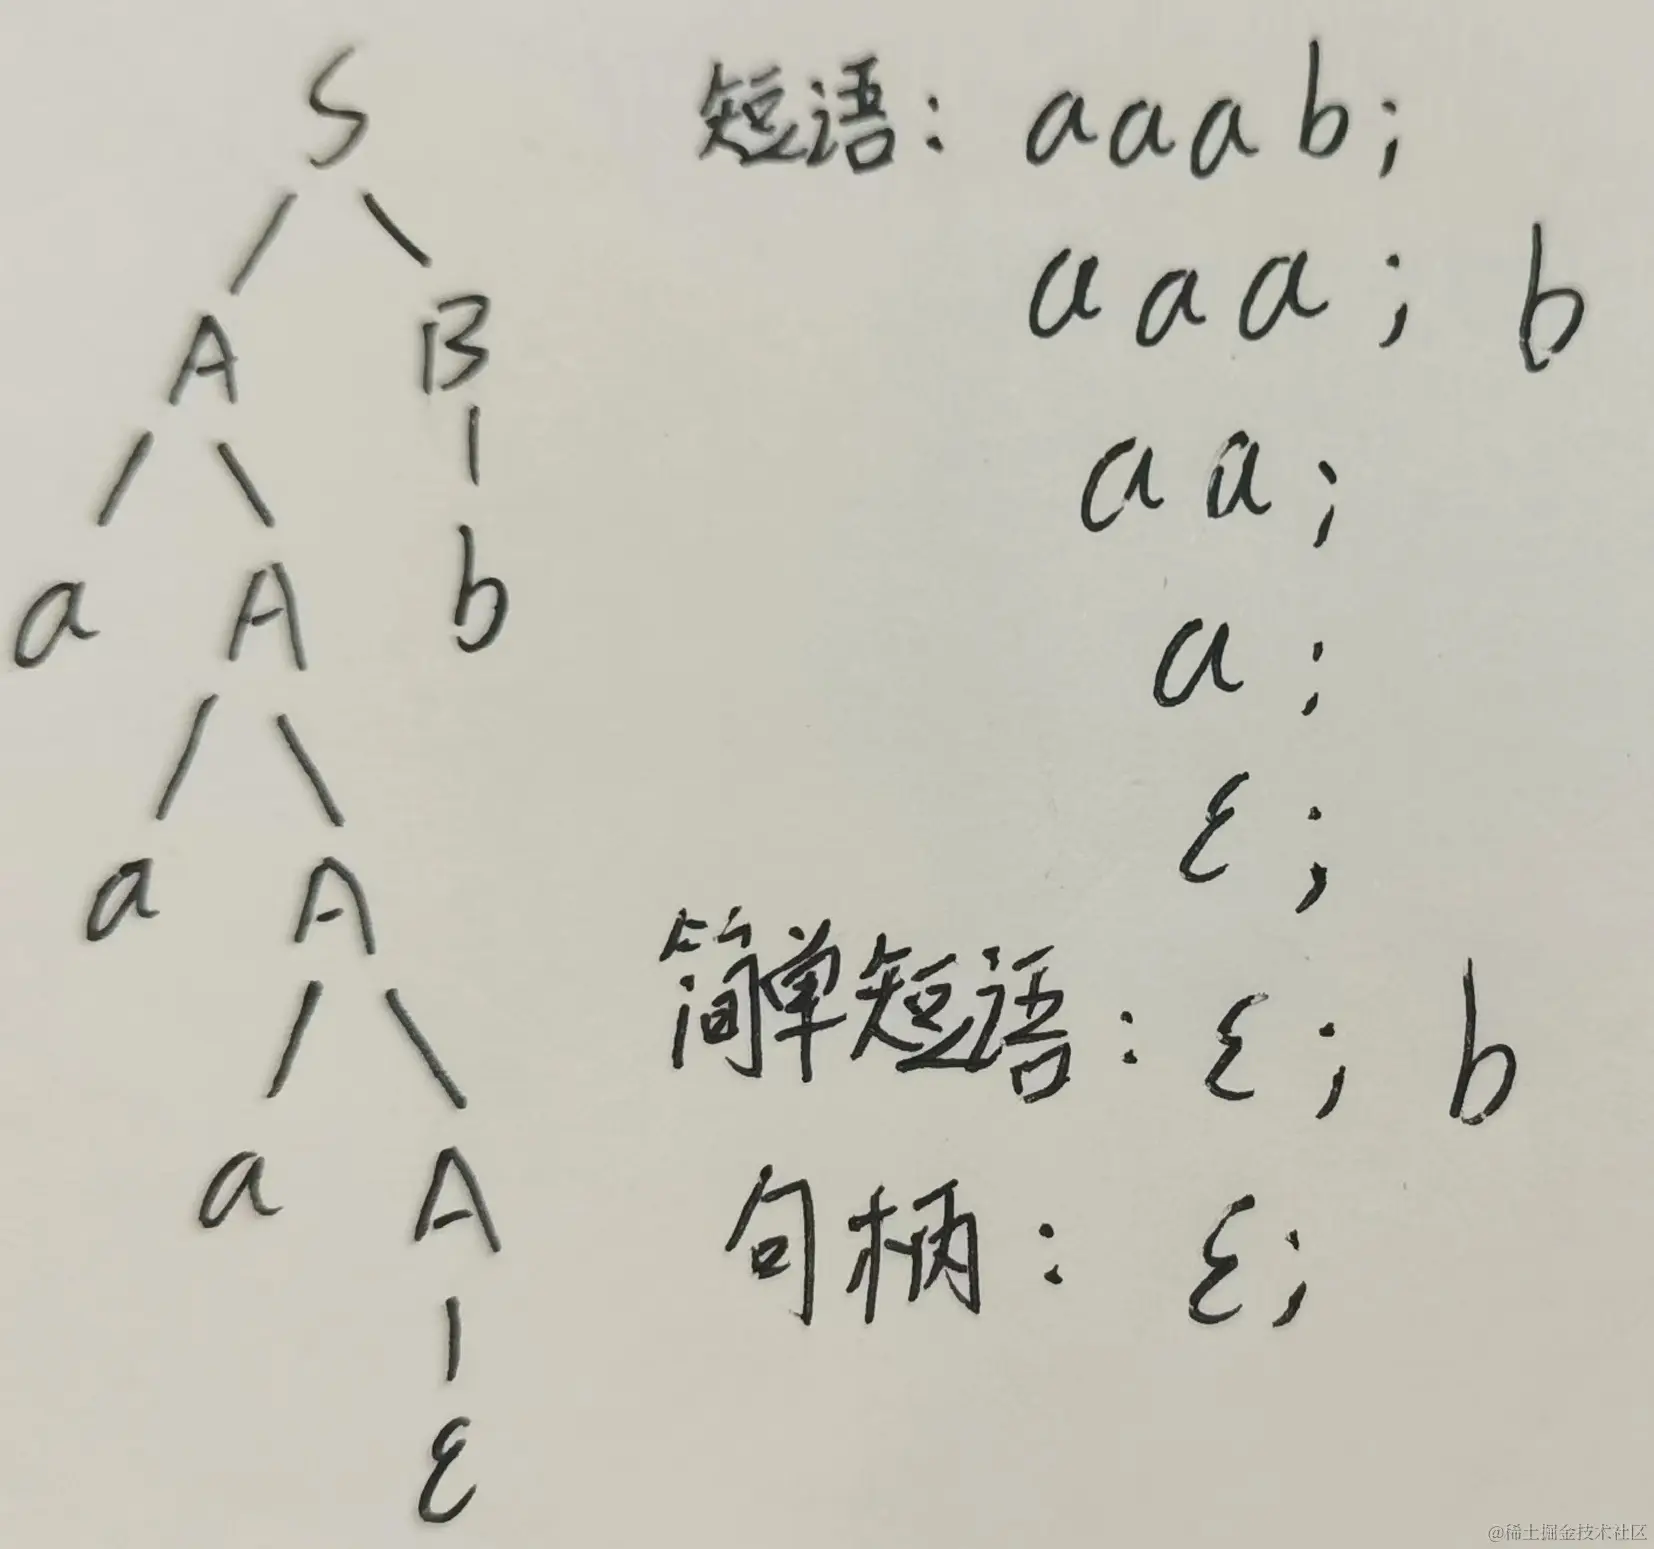 S
A B
a A b
a A
a A
ε
短语: aaab;
aaa; b
aa;
a;
ε;
简单短语: ε; b
句柄: ε;
@稀土掘金技术社区